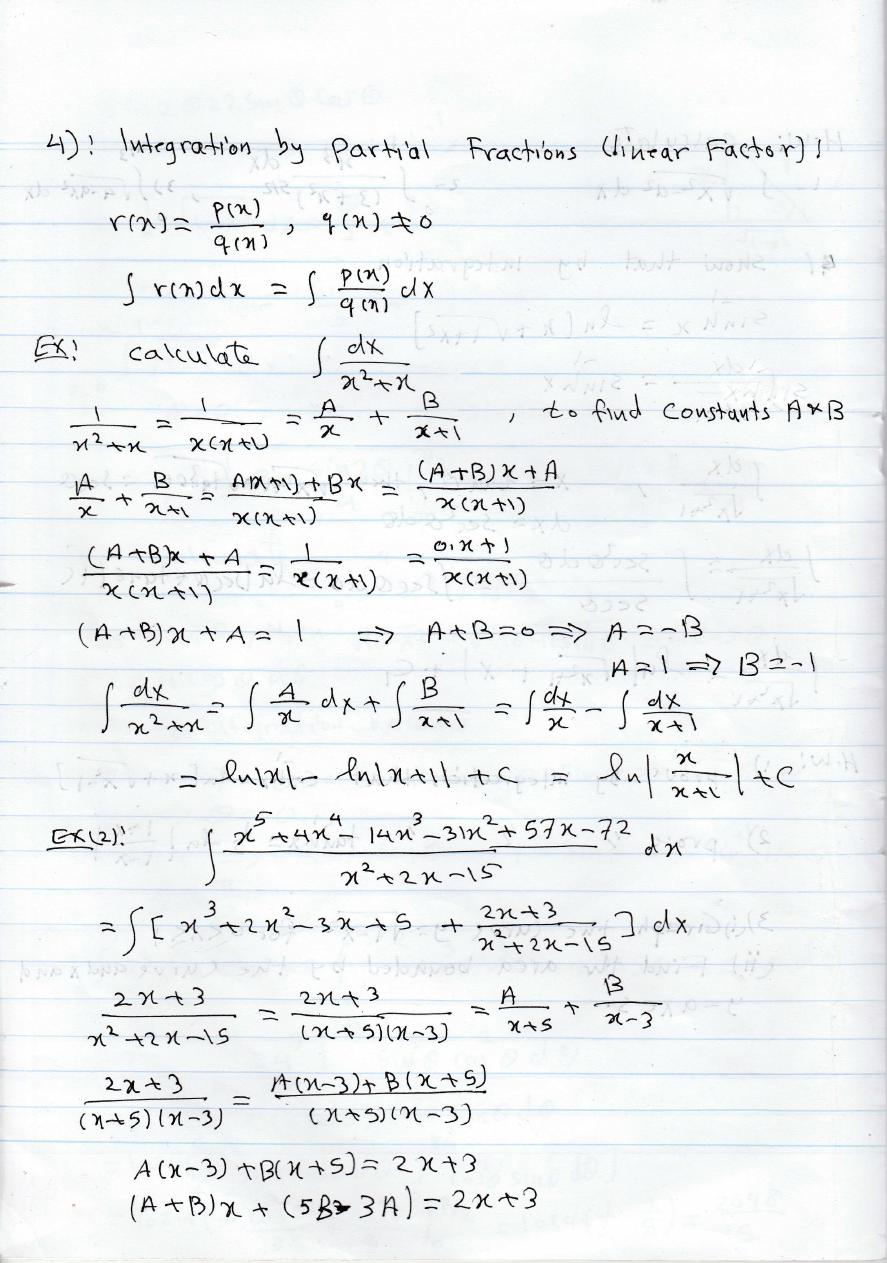 4): Integration by Partial Fractions (linear Factor):
r(x) = p(x)/q(x) , q(x) ≠ 0
∫ r(x) dx = ∫ p(x)/q(x) dx
Ex: calculate ∫ dx/(x²+x)
1/(x²+x) = 1/(x(x+1)) = A/x + B/(x+1) , to find constants A & B
A/x + B/(x+1) = (A(x+1)+Bx)/(x(x+1)) = ((A+B)x+A)/(x(x+1))
((A+B)x + A)/(x(x+1)) = 1/(x(x+1)) = (0.x+1)/(x(x+1))
(A+B)x + A = 1 ⇒ A+B=0 ⇒ A=-B
A=1 ⇒ B=-1
∫ dx/(x²+x) = ∫ A/x dx + ∫ B/(x+1) = ∫ dx/x - ∫ dx/(x+1)
= ln|x| - ln|x+1| + C = ln|x/(x+1)| + C
Ex(2): ∫ (x⁵+4x⁴-14x³-31x²+57x-72)/(x²+2x-15) dx
= ∫ [x³+2x²-3x+5 + (2x+3)/(x²+2x-15)] dx
(2x+3)/(x²+2x-15) = (2x+3)/((x+5)(x-3)) = A/(x+5) + B/(x-3)
(2x+3)/((x+5)(x-3)) = (A(x-3)+B(x+5))/((x+5)(x-3))
A(x-3)+B(x+5) = 2x+3
(A+B)x + (5B-3A) = 2x+3